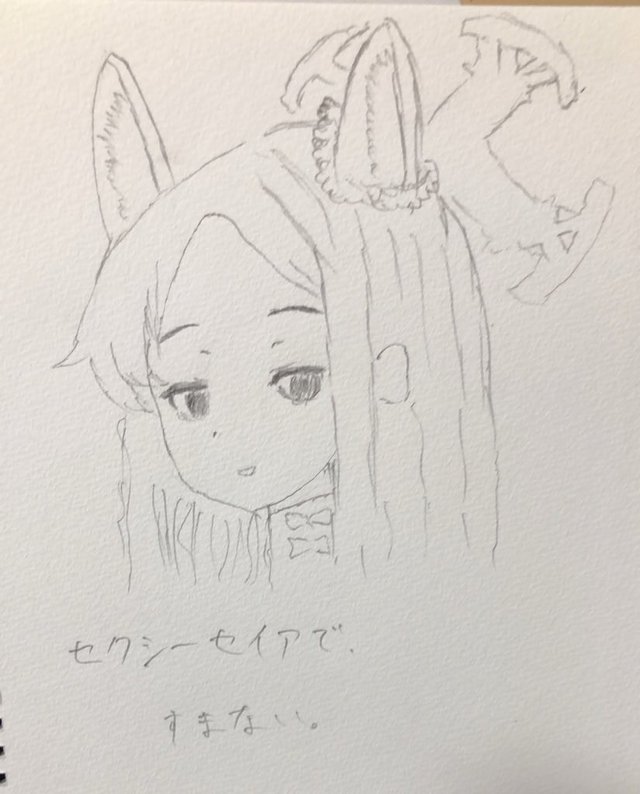 セクシーセイアで、
すまない。